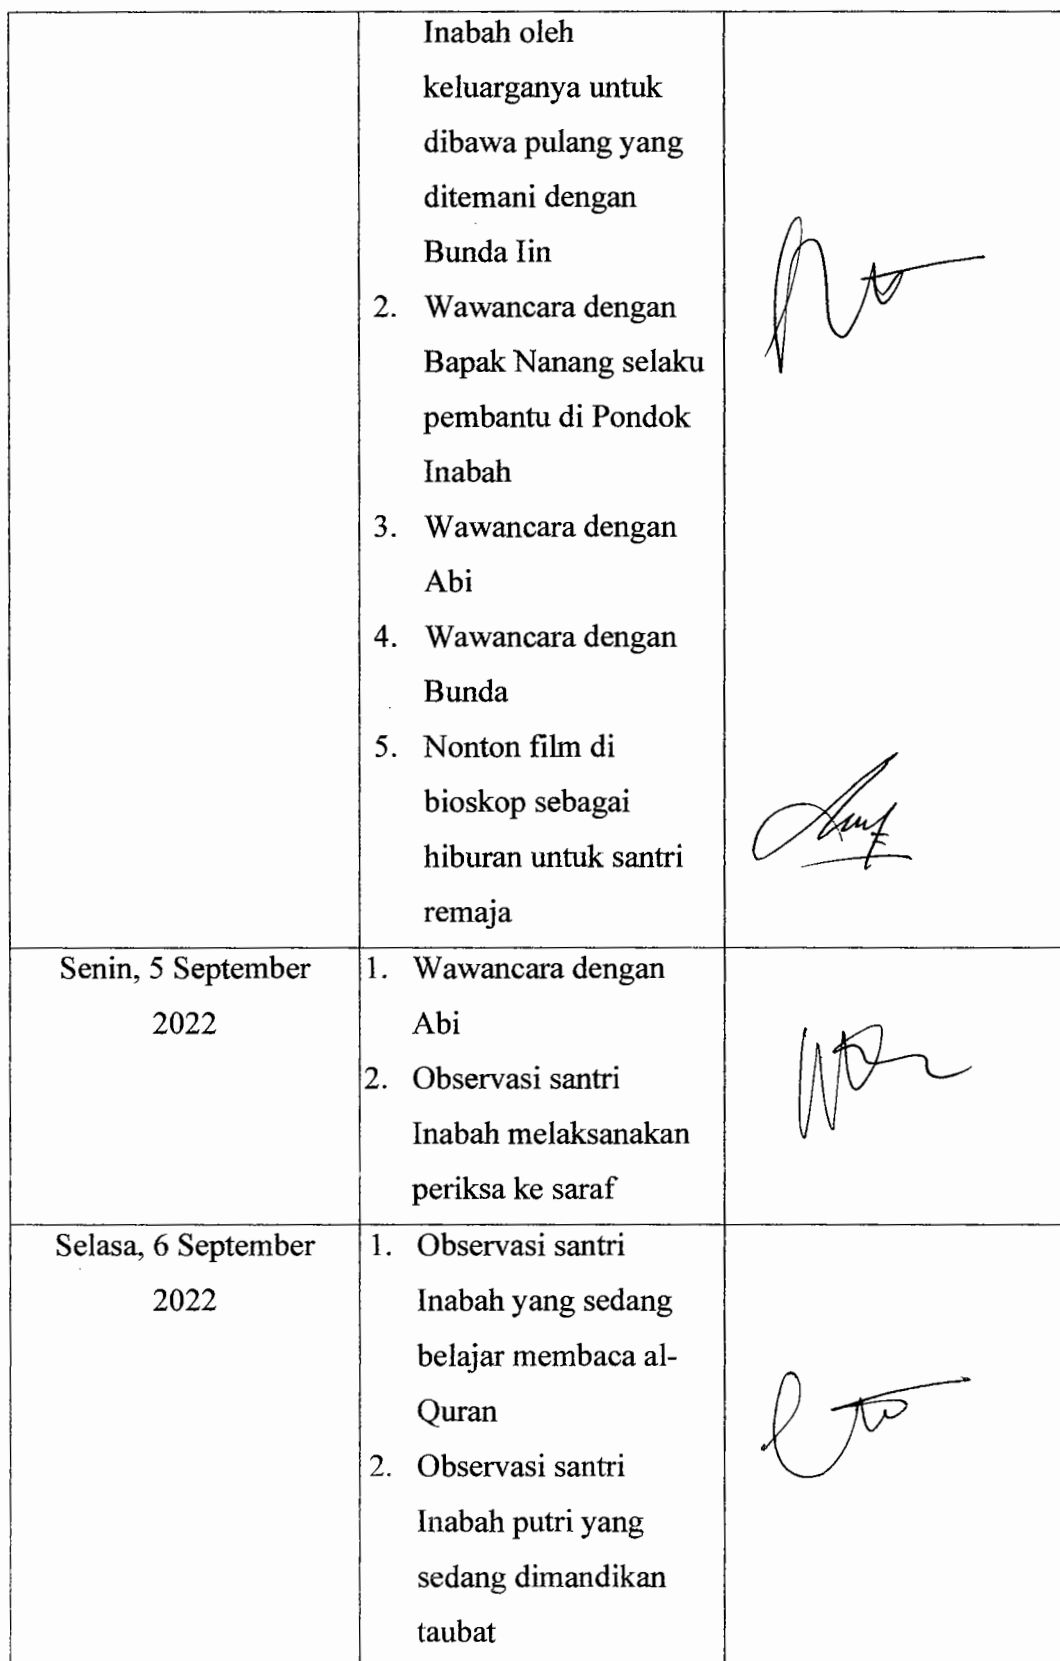 Inabah oleh
keluarganya untuk
dibawa pulang yang
ditemani dengan
Bunda Iin
2. Wawancara dengan
Bapak Nanang selaku
pembantu di Pondok
Inabah
3. Wawancara dengan
Abi
4. Wawancara dengan
Bunda
5. Nonton film di
bioskop sebagai
hiburan untuk santri
remaja
Senin, 5 September
2022
1. Wawancara dengan
Abi
2. Observasi santri
Inabah melaksanakan
periksa ke saraf
Selasa, 6 September
2022
1. Observasi santri
Inabah yang sedang
belajar membaca al-
Quran
2. Observasi santri
Inabah putri yang
sedang dimandikan
taubat